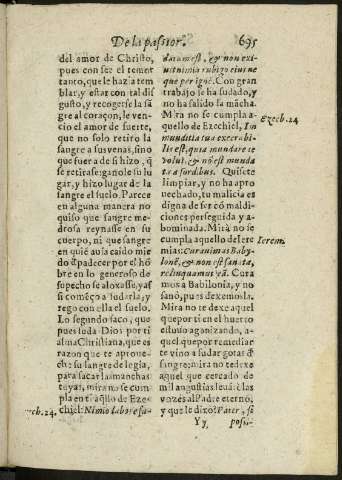 De la passion. 695
del amor de Christo,
pues con ser el temer
tanto, que le hazia tem
blar, y estar con tal dis
gusto, y recogerse la sã
gre al coraçon, le ven-
cio el amor de suerte,
que no solo retiro la
sangre a sus venas, sino
que fuera de si hizo, q̃
se retirase: ganole su lu
gar, y hizo lugar de la
sangre el suelo. Parece
en alguna manera no
quiso que sangre me-
drosa reynasse en su
cuerpo, ni que sangre
en quiẽ auia caido mie
do d̃ padecer por el hõ
bre en lo generoso de
su pecho se aloxasse, y assi
si començo a sudarla, y
rego con ella el suelo.
Lo segundo saco, que
pues suda Dios por ti
alma Christiana, que es
razon que te aproue-
che: su sangre de legia,
para sacar las manchas
tuyas, mira no se cum
pla en ti aq̃llo de Eze-
chiel: Nimio labore su-
Ezech. 24.
datum est, & non exi-
uit nimia rubigo eius ne
que per ignẽ. Con gran
trabajo se ha sudado, y
no ha salido la mãcha.
Mira no se cumpla a-
quello de Ezechiel, In
munditia tua execrabi-
lis est, quia mundare te
volui, & nõ est munda
ta a sordibus. Quisete
limpiar, y no ha apro
uechado, tu malicia es
digna de ser cõ maldi-
ciones perseguida y a-
bominada. Mira no se
cumpla aquello de Iere
mias: Curauimus Baby-
lonẽ, & non est sanata,
relinquamus eã. Cura
mos a Babilonia, y no
sanò, pues dexemosla.
Mira no te dexe aquel
que por ti en el huerto
estuuo aganizando, a-
quel que por remediar
te vino a sudar gotas d̃
sangre; mira no te dexe
aquel que cercado de
mil angustias leuãta las
vozes al Padre eterno,
y que le dixo? Pater, si
Yy possi-
Ezech. 24
Ierem.